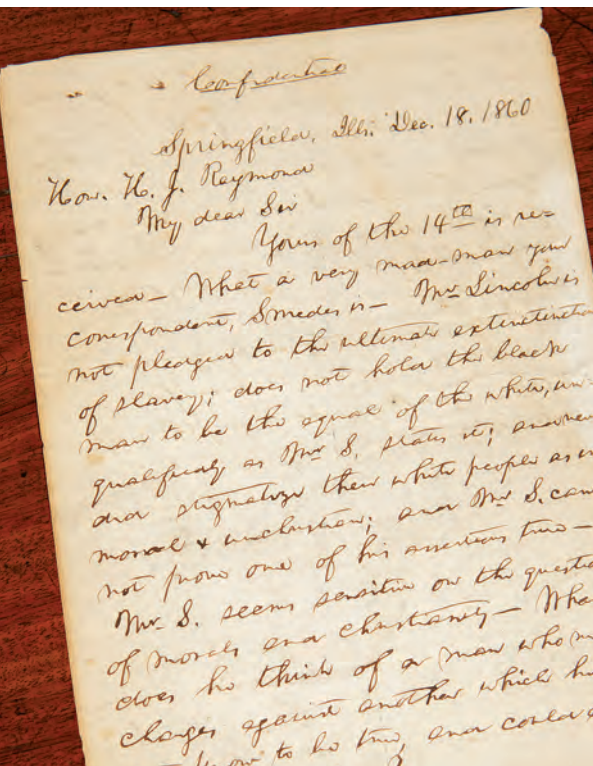 Confidential
Springfield, Ills. Dec. 18, 1860
Hon. H. J. Raymond
My dear Sir
Yours of the 14th is re-
ceived — What a very mad-man your
correspondent, Smedes is — Mr. Lincoln is
not pledged to the ultimate extinctinction
of slavery; does not hold the black
man to be the equal of the white, un-
qualifiedly as Mr. S. states it; and never
did stigmatize their white people as im
moral & unchristian; and Mr. S. can
not prove one of his assertions true —
Mr. S. seems sensitive on the questio
of morals and christianity — What
does he think of a man who m
charges against another which he
know to be true, and could